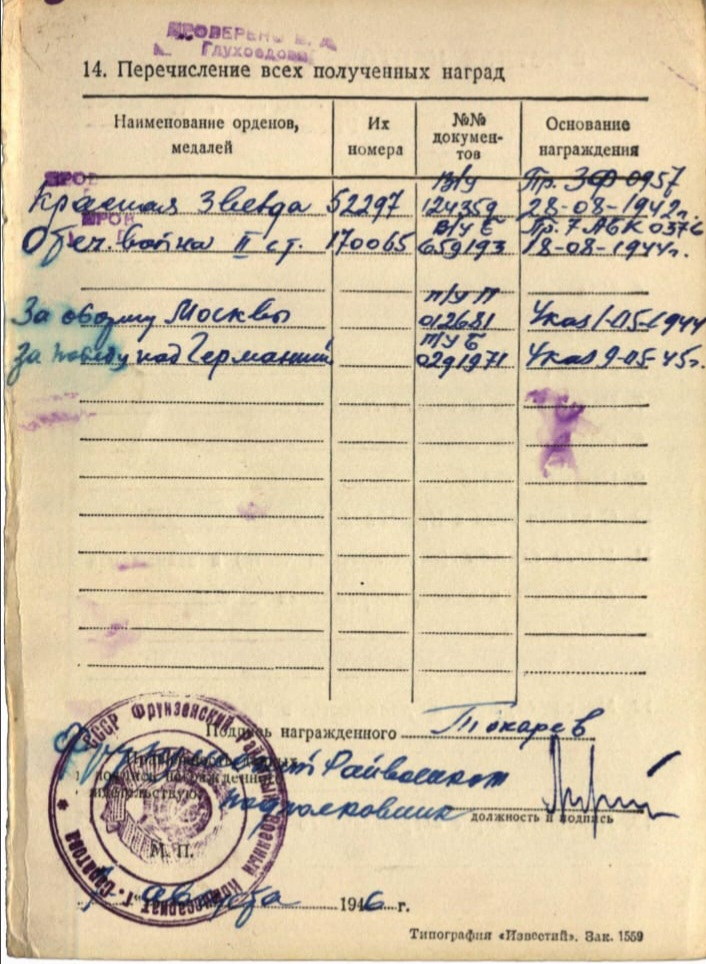 ПРОВЕРЕНО
Глухоедова
14. Перечисление всех полученных наград
Наименование орденов, медалей
Их номера
№№ документов
Основание награждения
В/У Пр. ЗФ 0957
Красная Звезда 52297 124359 28-08-1942г.
В/У Е Пр. 7 АБК 0376
Отеч. война II ст. 170065 659193 18-08-1944г.
П/У П
За оборону Москвы 012681 Указ 1-05-1944
Т/У Б
За победу над Германией 0291971 Указ 9-05-45г.
Подпись награжденного Токарев
Правильность
подписи награжденного
свидетельствую
Райвоенком
подполковник
должность и подпись
М. П.
СССР Фрунзенский Районный Военный Комиссариат г. Саратова
августа 1946 г.
Типография «Известий». Зак. 1559